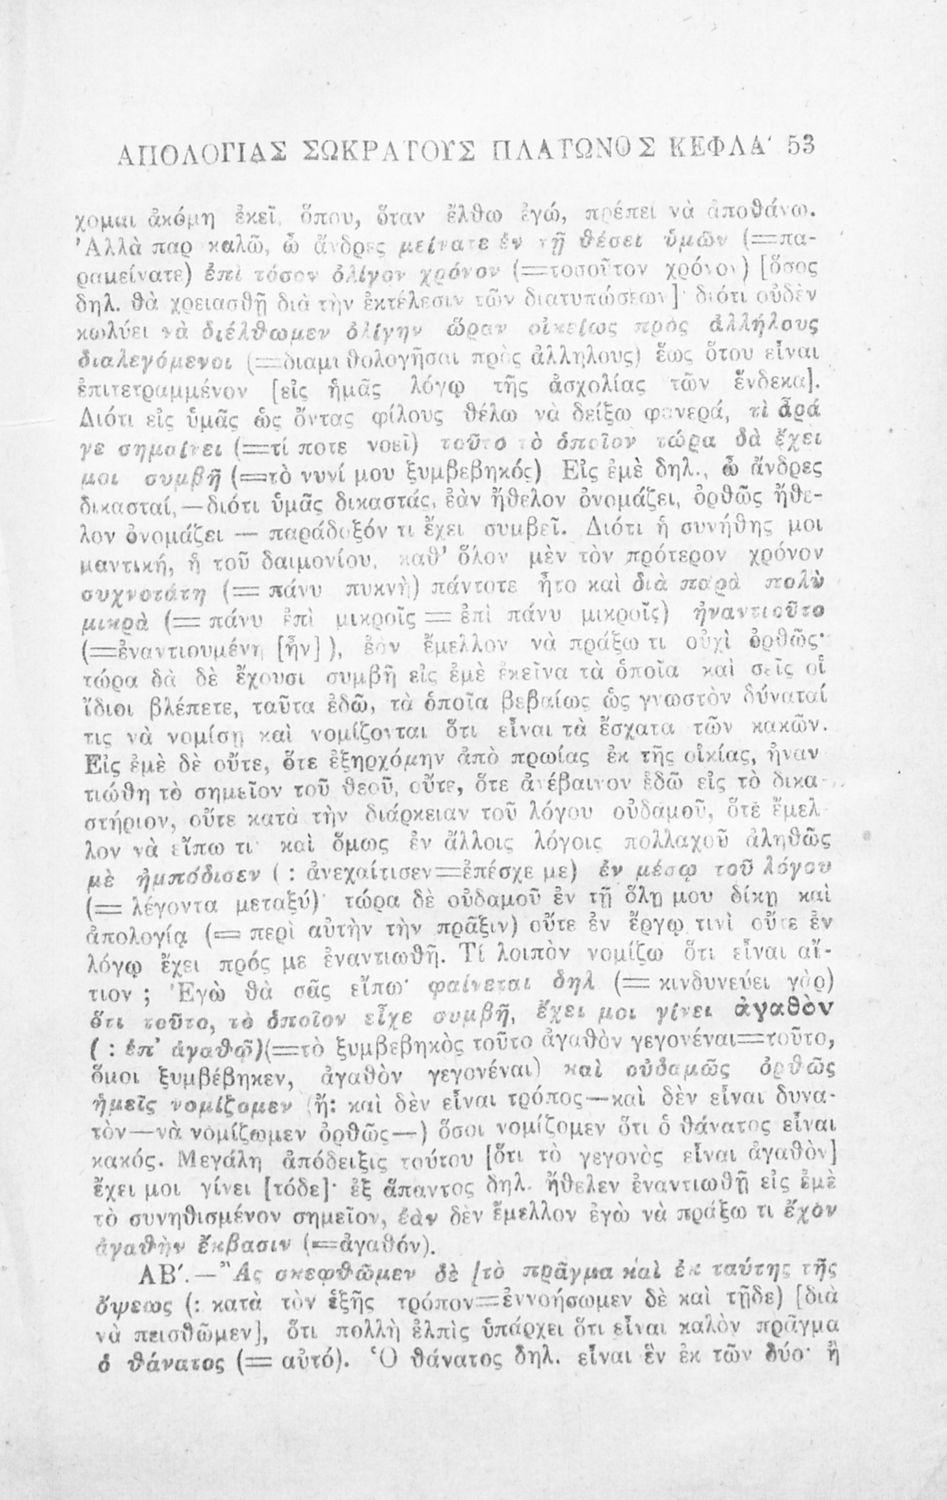 ΑΠΟΛΟΓΙΑΣ ΣΩΚΡΑΤΟΥΣ ΠΛΑΤΩΝΟΣ ΚΕΦ ΛΑ΄ 53
χομαι ἀκόμη ἐκεῖ, ὅπου, ὅταν ἔλθω ἐγώ, πρέπει νὰ ἀποθάνω.
Ἀλλὰ παρ καλῶ, ὦ ἄνδρες μείνατε ἐν τῇ θέσει ὑμῶν (=πα-
ραμείνατε) ἐπὶ τόσον ὀλίγον χρόνον (=τοσοῦτον χρόνον) [ὅσος
δηλ. θὰ χρειασθῇ διὰ τὴν ἐκτέλεσιν τῶν διατυπώσεων]· διότι οὐδὲν
κωλύει νὰ διέλθωμεν ὀλίγην ὥραν οἰκείως πρὸς ἀλλήλους
διαλεγόμενοι (=διαμυθολογῆσαι πρὸς ἀλλήλους) ἕως ὅτου εἶναι
ἐπιτετραμμένον [εἰς ἡμᾶς λόγῳ τῆς ἀσχολίας τῶν ἕνδεκα].
Διότι εἰς ὑμᾶς ὡς ὄντας φίλους θέλω νὰ δείξω φανερά, τὶ ἆρά
γε σημαίνει (=τί ποτε νοεῖ) τοῦτο τὸ ὁποῖον τώρα δὰ ἔχει
μοι συμβῆ (=τὸ νυνί μου ξυμβεβηκός) Εἰς ἐμὲ δηλ., ὦ ἄνδρες
δικασταί,—διότι ὑμᾶς δικαστάς, ἐὰν ἤθελον ὀνομάζει, ὀρθῶς ἤθε-
λον ὀνομάζει — παράδοξόν τι ἔχει συμβεῖ. Διότι ἡ συνήθης μοι
μαντική, ἡ τοῦ δαιμονίου, καθ' ὅλον μὲν τὸν πρότερον χρόνον
συχνοτάτη (= πάνυ πυκνὴ) πάντοτε ἦτο καὶ διὰ παρὰ πολὺ
μικρὰ (= πάνυ ἐπὶ μικροῖς = ἐπὶ πάνυ μικροῖς) ἠναντιοῦτο
(=ἐναντιουμένη [ἦν]), ἐὰν ἔμελλον νὰ πράξω τι οὐχὶ ὀρθῶς·
τώρα δὰ δὲ ἔχουσι συμβῆ εἰς ἐμὲ ἐκεῖνα τὰ ὁποῖα καὶ σεῖς οἱ
ἴδιοι βλέπετε, ταῦτα ἐδῶ, τὰ ὁποῖα βεβαίως ὡς γνωστὸν δύναταί
τις νὰ νομίσῃ καὶ νομίζονται ὅτι εἶναι τὰ ἔσχατα τῶν κακῶν.
Εἰς ἐμὲ δὲ οὔτε, ὅτε ἐξηρχόμην ἀπὸ πρωίας ἐκ τῆς οἰκίας, ἠναν
τιώθη τὸ σημεῖον τοῦ θεοῦ, οὔτε, ὅτε ἀνέβαινον ἐδῶ εἰς τὸ δικα-
στήριον, οὔτε κατὰ τὴν διάρκειαν τοῦ λόγου οὐδαμοῦ, ὅτε ἔμελ
λον νὰ εἴπω τι· καὶ ὅμως ἐν ἄλλοις λόγοις πολλαχοῦ ἀληθῶς
μὲ ἠμπόδισεν (: ἀνεχαίτισεν=ἐπέσχε με) ἐν μέσῳ τοῦ λόγου
(= λέγοντα μεταξύ)· τώρα δὲ οὐδαμοῦ ἐν τῇ ὅλῃ μου δίκῃ καὶ
ἀπολογίᾳ (= περὶ αὐτὴν τὴν πρᾶξιν) οὔτε ἐν ἔργῳ τινὶ οὔτε ἐν
λόγῳ ἔχει πρός με ἐναντιωθῆ. Τί λοιπὸν νομίζω ὅτι εἶναι αἴ-
τιον ; Ἐγὼ θὰ σᾶς εἴπω· φαίνεται δηλ (= κινδυνεύει γὰρ)
ὅτι τοῦτο, τὸ ὁποῖον εἶχε συμβῆ, ἔχει μοι γίνει ἀγαθὸν
( : ἐπ' ἀγαθῷ)(=τὸ ξυμβεβηκὸς τοῦτο ἀγαθὸν γεγονέναι=τοῦτο,
ὅμοι ξυμβέβηκεν, ἀγαθὸν γεγονέναι) καὶ οὐδαμῶς ὀρθῶς
ἡμεῖς νομίζομεν (ἤ: καὶ δὲν εἶναι τρόπος—καὶ δὲν εἶναι δυνα-
τὸν—νὰ νομίζωμεν ὀρθῶς—) ὅσοι νομίζομεν ὅτι ὁ θάνατος εἶναι
κακός. Μεγάλη ἀπόδειξις τούτου [ὅτι τὸ γεγονὸς εἶναι ἀγαθὸν]
ἔχει μοι γίνει [τόδε]· ἐξ ἅπαντος δηλ. ἤθελεν ἐναντιωθῆ εἰς ἐμὲ
τὸ συνηθισμένον σημεῖον, ἐὰν δὲν ἔμελλον ἐγὼ νὰ πράξω τι ἔχον
ἀγαθὴν ἔκβασιν (=ἀγαθόν).
ΛΒ΄.—Ἂς σκεφθῶμεν δὲ [τὸ πρᾶγμα καὶ ἐκ ταύτης τῆς
ὄψεως (: κατὰ τὸν ἑξῆς τρόπον=ἐννοήσωμεν δὲ καὶ τῇδε) [διὰ
νὰ πεισθῶμεν], ὅτι πολλὴ ἐλπὶς ὑπάρχει ὅτι εἶναι καλὸν πρᾶγμα
ὁ θάνατος (= αὐτό). Ὁ θάνατος δηλ. εἶναι ἓν ἐκ τῶν δύο· ἢ